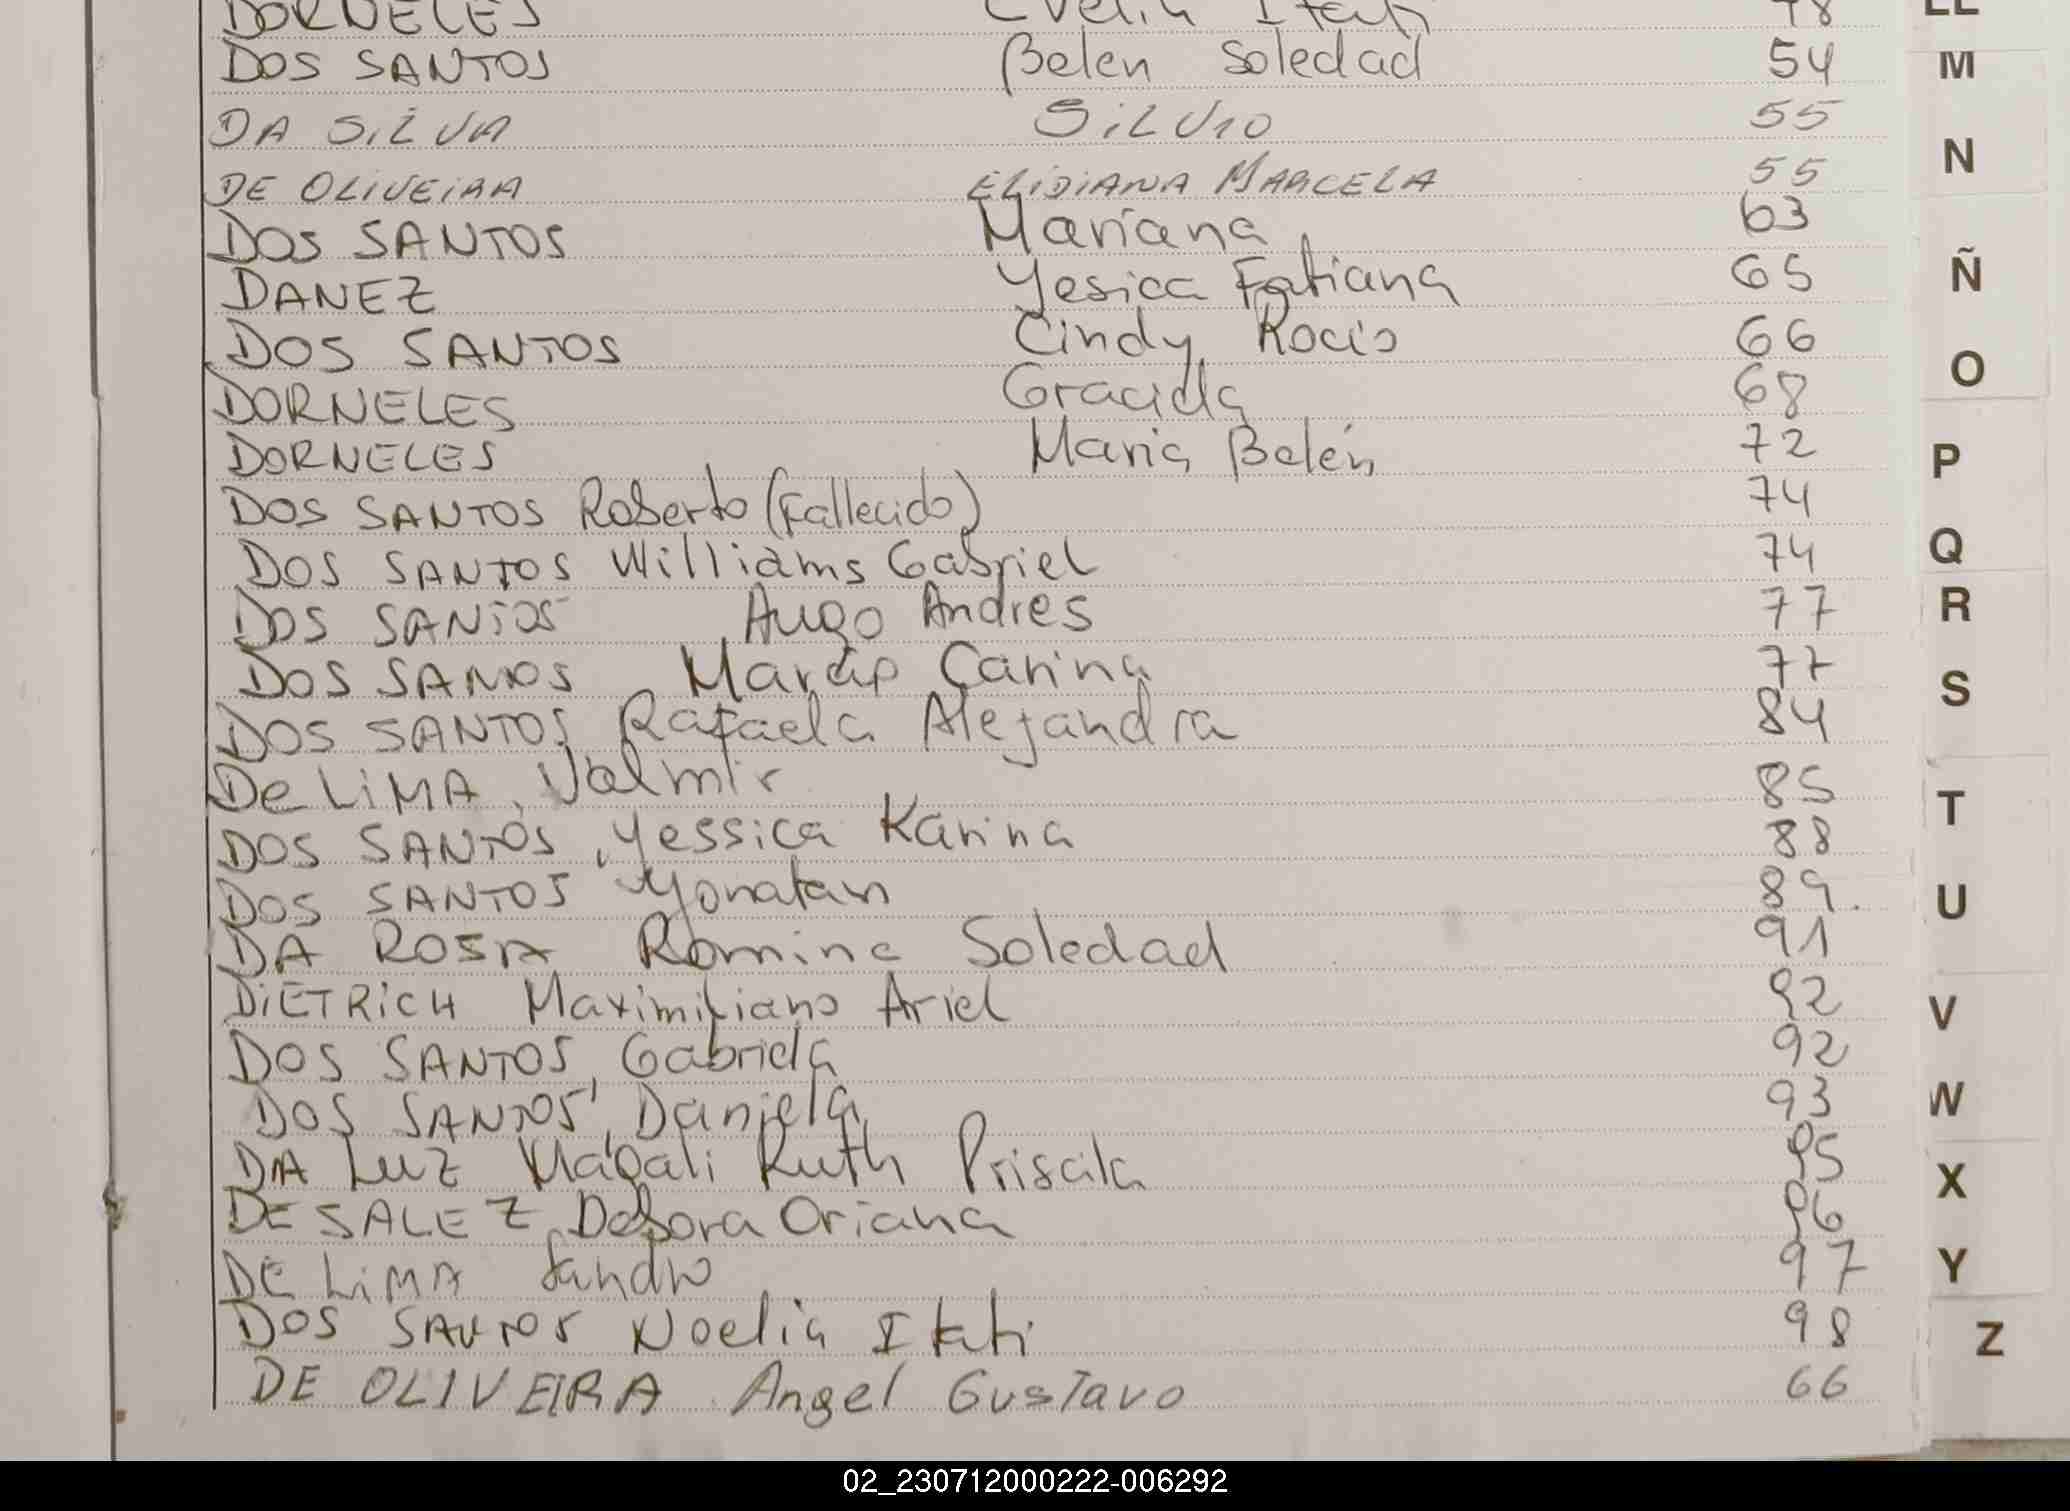 DORNELES Evelin Itati 48
DOS SANTOS Belen Soledad 54
DA SiLVA SiLVIO 55
DE OLIVEIRA ELIDIANA MARCELA 55
DOS SANTOS Mariana 63
DANEZ Yesica Fatiana 65
DOS SANTOS Cindy Rocio 66
DORNELES Graciela 68
DORNELES Maria Belén 72
DOS SANTOS Roberto (Fallecido) 74
DOS SANTOS Williams Gabriel 74
DOS SANTOS Hugo Andres 77
DOS SANTOS Carina 77
DOS SANTOS Rafaela Alejandra 84
De LiMA, Valmir 85
DOS SANTOS, Yessica Karina 88
DOS SANTOS Yonatan 89.
DA ROSA Romina Soledad 91
DiETRiCH Maximiliano Ariel 92
DOS SANTOS, Gabriela 92
DOS SANTOS, Daniela 93
DA LUZ Magali Ruth Priscila 95
DE SALEZ, Debora Oriana 96
DE LiMA Sandro 97
DOS SANTOS Noelia Itati 98
DE OLIVEIRA Angel Gustavo 66
LL
M
N
Ñ
O
P
Q
R
S
T
U
V
W
X
Y
Z
02_230712000222-006292